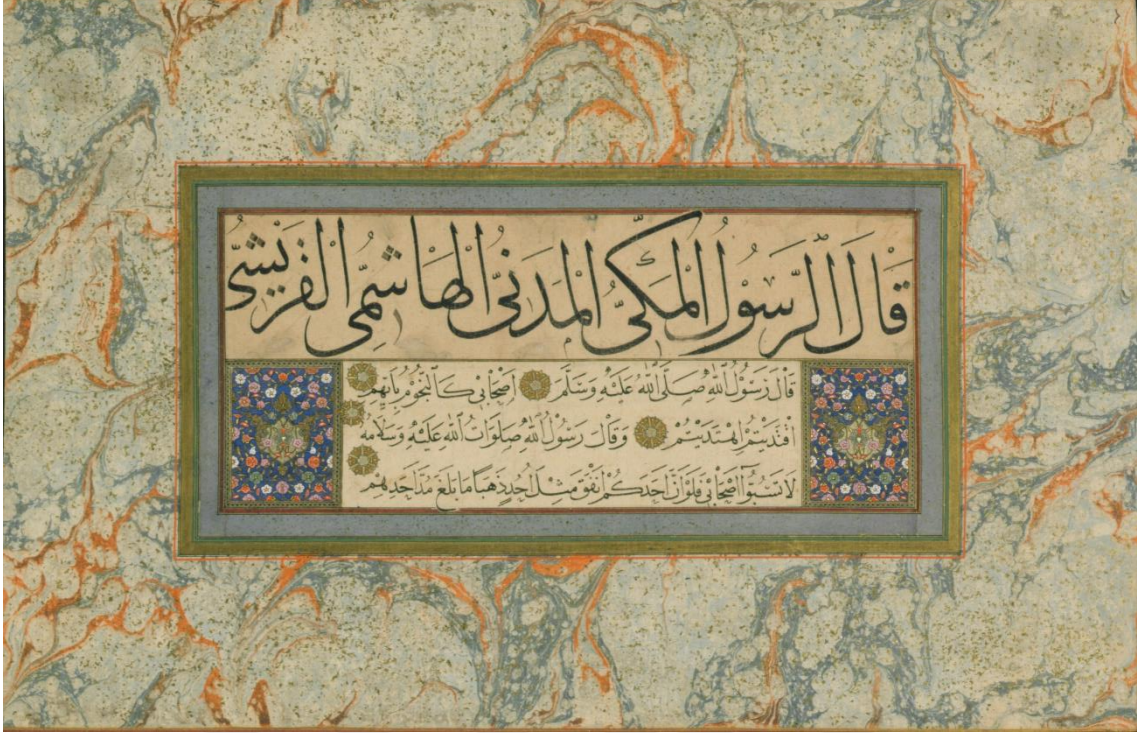 قَالَ الرَّسُولُ الْمَكِّيُّ الْمَدَنِيُّ الْهَاشِمِيُّ الْقُرَيْشِيُّ
قَالَ رَسُولُ اللّٰهِ صَلَّى اللّٰهُ عَلَيْهِ وَسَلَّمَ اَصْحَابِي كَالنُّجُومِ بِاَيِّهِمْ
اقْتَدَيْتُمْ اِهْتَدَيْتُمْ وَقَالَ رَسُولُ اللّٰهِ صَلَوَاتُ اللّٰهِ عَلَيْهِ وَسَلَامُهُ
لَا تَسُبُّوا اَصْحَابِي فَلَوْ اَنَّ اَحَدَكُمْ اَنْفَقَ مِثْلَ اُحُدٍ ذَهَبًا مَا بَلَغَ مُدَّ اَحَدِهِمْ